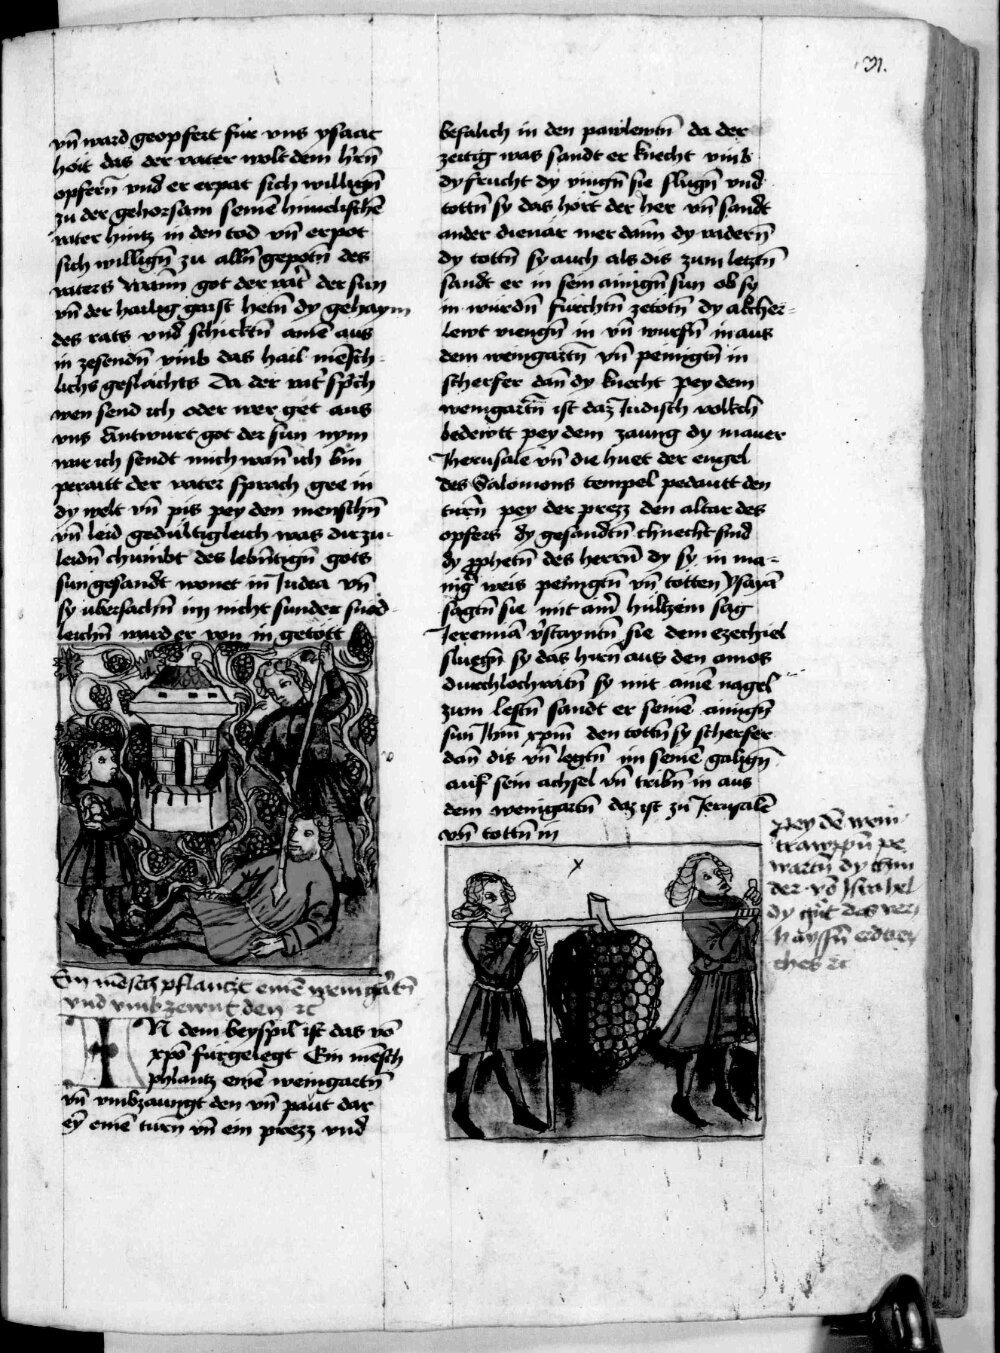 31.
vn̄ ward geopfert fur vns ysaac
hort das der vater wolt dem h'rn̄
opfern̄ vnd er erpat sich willign̄
zu der gehorsam seinē himelischē
vater hintz in den tod vn̄ erpot
sich willign̄ zu alln̄ gepotn̄ des
vaters Wann̄ got der vat' der sun
vn̄ der hailig gaist hetn̄ dy gehaym
des rats vnd schicktn̄ ainē aus
in zesendn̄ vmb das hail mēsch-
lichs geslachts Da der vat' sprch
wen send ich oder wer get aus
vns Antwurt got der sun nym
war ich sendt mich wan̄ ich bin
peraitt der vater sprach gee in
dy welt vn̄ pis pey den menschn̄
vn̄ leid gedultigleich was dir zu-
leidn̄ chumbt des lebn̄tign̄ gots
sun gesandt wonet in Iudea vn̄
sy ubersachn̄ im nicht sunder snod-
leichn̄ ward er von in getott
Ein mēsch pflanczt einē weingart'n̄
vnd vmbzewnt den ꝛc
IN dem beyspil ist das vō
xpō furgelegt Ein mēsch
phlantz einē weingartn̄
vn̄ vmbzaungt den vn̄ paut dar
ey einē turn vn̄ ein prezz vnd
befalich in den pawlewtn̄ da der
zeitig was sandt er knecht vmb
dy frucht dy vingn̄ sie slugn̄ vnd
tottn̄ sy das hort der her vn̄ sandt
ander dienār mer dann dy vadern̄
dy tottn̄ sy auch als dis zum letztn̄
sandt er in sein ainign̄ sun ob sy
in wurdn̄ furchtn̄ zetotn̄ dy akcher-
lewt viengn̄ in vn̄ wurfn̄ in aus
dem weingartn̄ vn̄ peinigtn̄ in
scherfer dan̄ dy knecht pey dem
weingartn̄ ist daz Iudisch volkch
bedewtt pey dem zaung dy mauer
Iherusalē vn̄ die huet der engel
des Salomons tempel pedautt den
turn̄ pey der prezz den altar des
opfers dy gesandtn̄ chnecht sind
dy pphetn̄ des herrn̄ dy sy in ma-
nig' weis peinigtn̄ vn̄ totten Ysayā
sagtn̄ sie mit ain' hultzeim sag
Ieremiā v'stayntn̄ sie dem ezechiel
slugn̄ sy das hirn̄ aus den amos
durchlochratn̄ sy mit ainē nagel
zum lestn̄ sandt er seinē ainign̄
sun Ihm̄ xpm̄ den tottn̄ sy scherfer
dan̄ dis vn̄ legtn̄ im seinē galign̄
auf sein achsel vn̄ tribn̄ in aus
dem weingartn̄ daz ist zu Ierusalē
vn̄ tottn̄ in
pey dē wein
trawpn̄ pe
wartn̄ dy chin
der vō Israhel
dy gut des ver
hayssn̄ erdrey
ches ꝛc